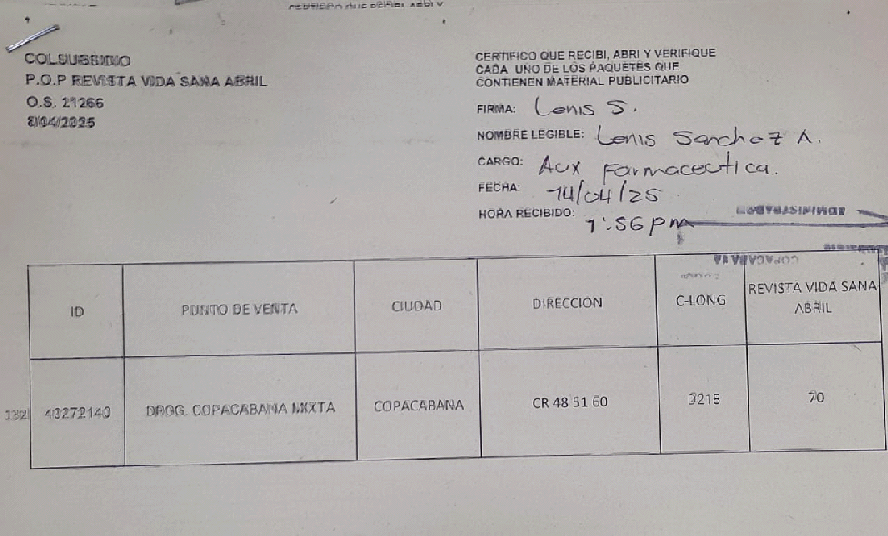 COLSUBSIDIO
P.O.P REVISTA VIDA SANA ABRIL
O.S. 21266
8/04/2025
CERTIFICO QUE RECIBI, ABRI Y VERIFIQUE
CADA UNO DE LOS PAQUETES QUE
CONTIENEN MATERIAL PUBLICITARIO
FIRMA: Lenis S.
NOMBRE LEGIBLE: Lenis Sanchez A.
CARGO: Aux Farmaceutica.
FECHA 14/04/25
HORA RECIBIDO: 1:56 pm
ID PUNTO DE VENTA CIUDAD DIRECCION C-LONG REVISTA VIDA SANA
ABRIL
132 DROG. COPACABANA MIXTA COPACABANA CR 48 51 60 20